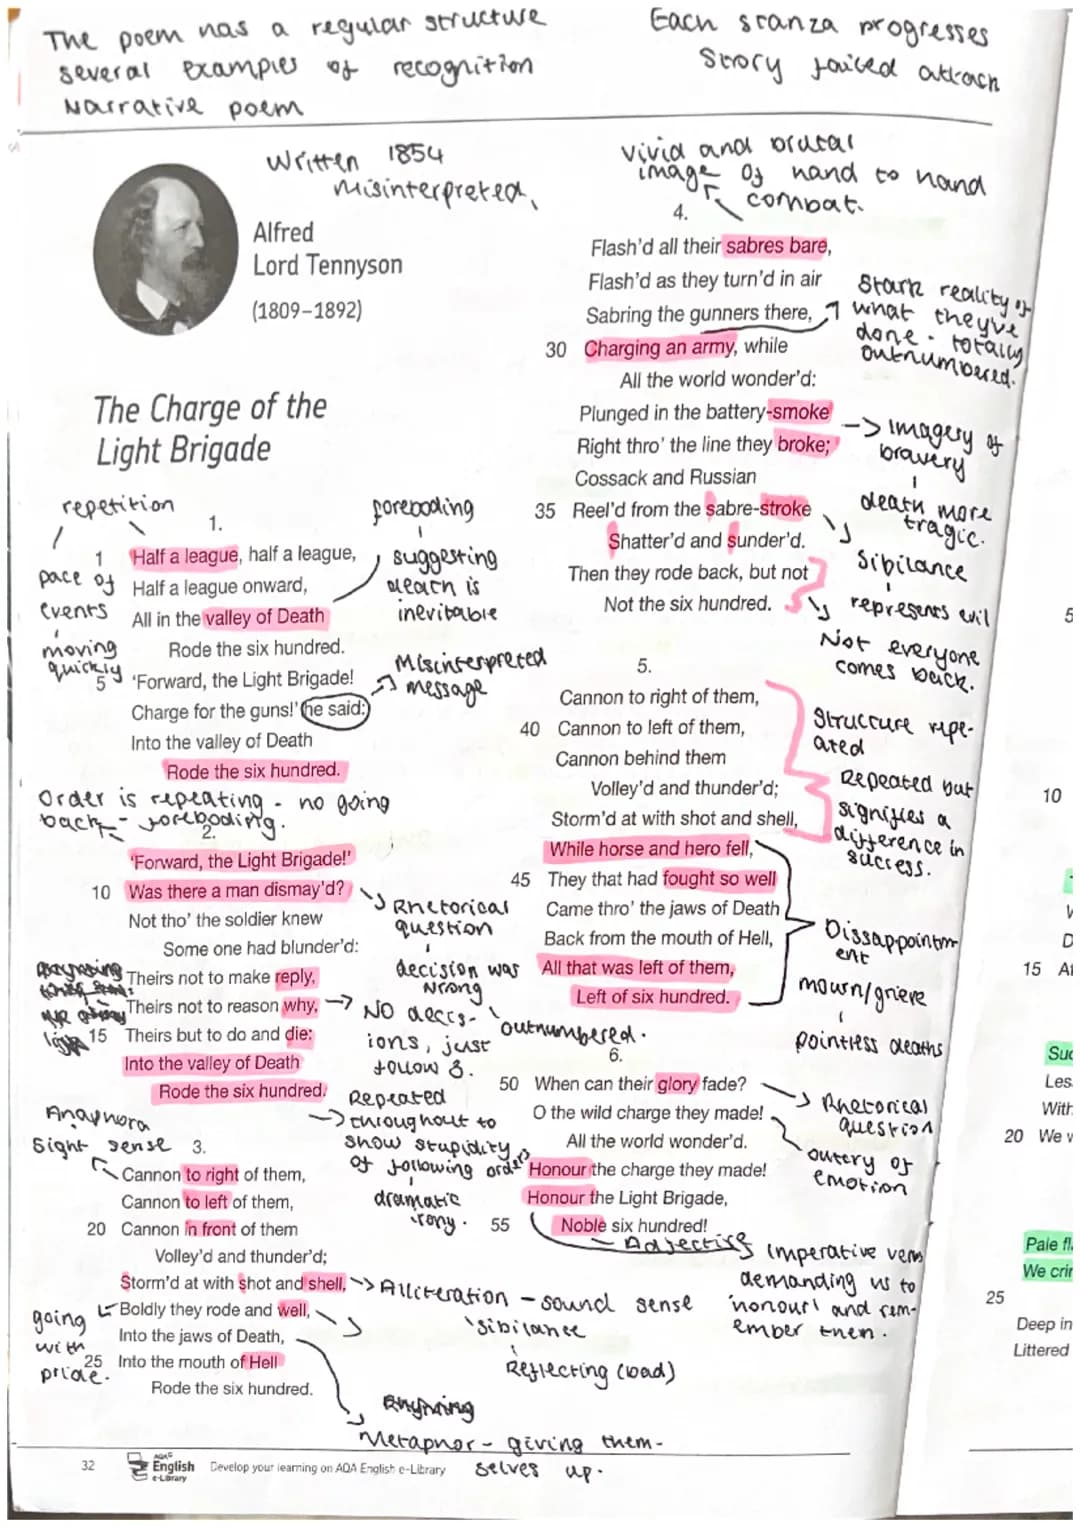 The poem has a regular structure
several examples of recognition
Narrative poem
Each stanza progresses
Story failed attack
Written 1854
Misinterpreted,
Alfred
Lord Tennyson
(1809–1892)
The Charge of the
Light Brigade
repetition
foreboding
1.
1 Half a league, half a league,
Half a league onward,
All in the valley of Death
Rode the six hundred.
5 'Forward, the Light Brigade!
Charge for the guns!' he said:
Into the valley of Death
Rode the six hundred.
pace of
events
moving
quickly
suggesting
death is
inevitable
Misinterpreted
message
Order is repeating - no going
back - foreboding.
2.
'Forward, the Light Brigade!'
10 Was there a man dismay'd?
Not tho' the soldier knew
Some one had blunder'd:
Theirs not to make reply,
Theirs not to reason why,
15 Theirs but to do and die:
Into the valley of Death
Rode the six hundred.
Rhetorical
question
decision was
wrong
No decis-
ions, just
follow
outnumbered.
Repeated
throughout to
show stupidity
of following orders
dramatic
irony.
Anaphora
Sight sense
3.
Cannon to right of them,
Cannon to left of them,
20 Cannon in front of them
Volley'd and thunder'd;
Storm'd at with shot and shell,
Boldly they rode and well,
Into the jaws of Death,
25 Into the mouth of Hell
Rode the six hundred.
going
with
pride.
Alliteration - sound sense
sibilance
Reflecting (bad)
Rhyming
Metaphor - giving them-
selves up.
vivid and brutal
image of hand to hand
combat.
4.
Flash'd all their sabres bare,
Flash'd as they turn'd in air
Sabring the gunners there,
30 Charging an army, while
All the world wonder'd:
Plunged in the battery-smoke
Right thro' the line they broke;
Cossack and Russian
35 Reel'd from the sabre-stroke
Shatter'd and sunder'd.
Then they rode back, but not
Not the six hundred.
Stark reality of
what theyve
done - totally
outnumbered.
Imagery of
bravery
death more
tragic.
Sibilance
represents evil
Not everyone
comes back.
5.
Cannon to right of them,
40 Cannon to left of them,
Cannon behind them
Volley'd and thunder'd;
Storm'd at with shot and shell,
While horse and hero fell,
45 They that had fought so well
Came thro' the jaws of Death
Back from the mouth of Hell,
All that was left of them,
Left of six hundred.
Structure repe-
ated
Repeated but
signifies a
difference in
success.
Dissappointm
ent
mown/grieve
pointless deaths
6.
50 When can their glory fade?
O the wild charge they made!
All the world wonder'd.
Honour the charge they made!
Honour the Light Brigade,
55 Noble six hundred!
Rhetorical
question
outcry of
emotion
Adjective
Imperative verb
demanding us to
'honour' and rem-
ember them.
32
AQA
English
e-Library
Develop your learning on AQA English e-Library
5
10
15
Suc
Les
With
20 We w
Pale fl
We crin
25
Deep in
Littered